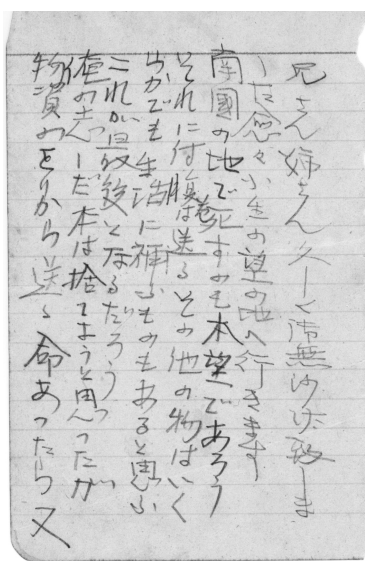 兄さん姉さん久しく御無沙汰致しま
した愈々小生の望の地へ行きます
南國の地で死すのも本望であろう
それに付 送るその他の物はいく
らかでも生活に補ふものもあると思ふ
これが最後となるだろう
俺の 本は捨てようと思ったが
物資 をりから送る 命あったら又